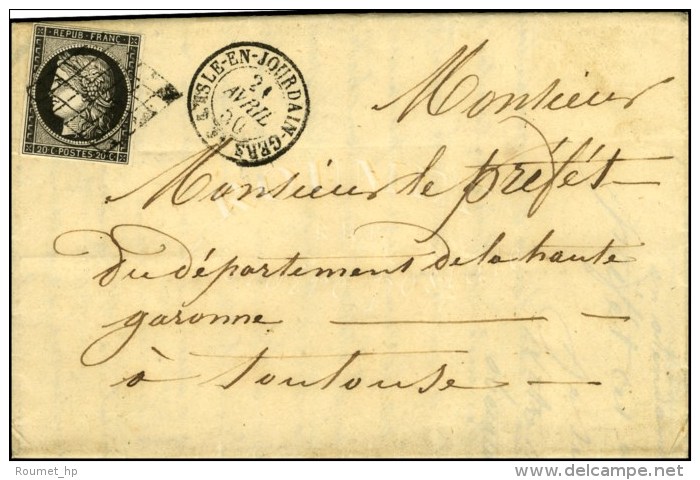 REPUB. FRANC.
20 C POSTES 20 C
L'ISLE-EN-JOURDAIN GERS
AVRIL
50
Monsieur
Monsieur le préfét
du département de la haute
garonne
à Toulouse
Roumet_hp
www.delcampe.net